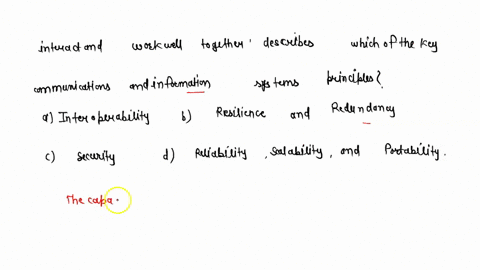 interact and work well together' describes which of the key
communications and information systems principles?
a) Interoperability b) Resilience and Redundancy
c) Security d) Reliability, Scalability, and Portability.
The capa